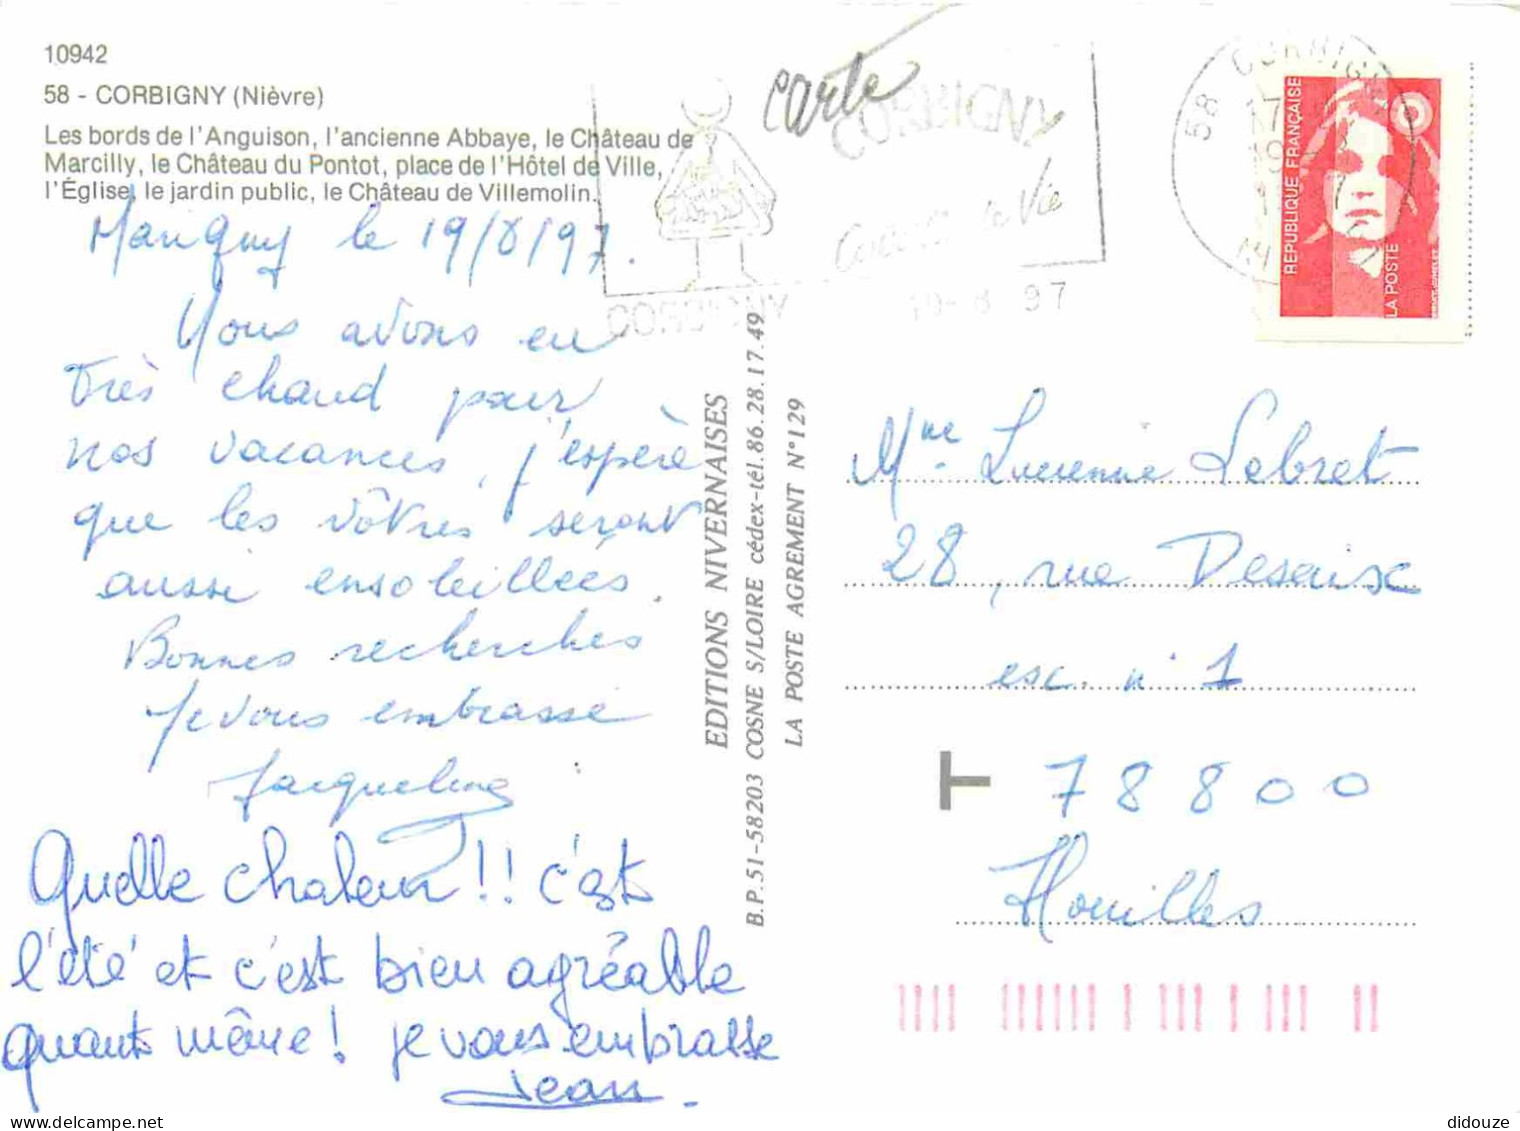 10942
58 - CORBIGNY (Nièvre)
Les bords de l'Anguison, l'ancienne Abbaye, le Château de
Marcilly, le Château du Pontot, place de l'Hôtel de Ville,
l'Église, le jardin public, le Château de Villemolin.
Marigny le 19/8/97.
Nous avons eu
très chaud pour
nos vacances, j'espère
que les vôtres seront
aussi ensoleillées.
Bonnes recherches
Je vous embrasse
Jacqueline
Quelle chaleur !! c'est
l'été et c'est bien agréable
quant même ! je vous embrasse
Jean
carte
CORBIGNY
la Vie
CORBIGNY
19-8 97
58 CORBIGNY
17
RÉPUBLIQUE FRANÇAISE
LA POSTE
EDITIONS NIVERNAISES
B.P. 51-58203 COSNE S/LOIRE cédex-tél.86.28.17.49
LA POSTE AGREMENT N°129
Mme Lucienne Lebret
28, rue Desaix
esc. n° 1
T 78800
Houilles
didouze